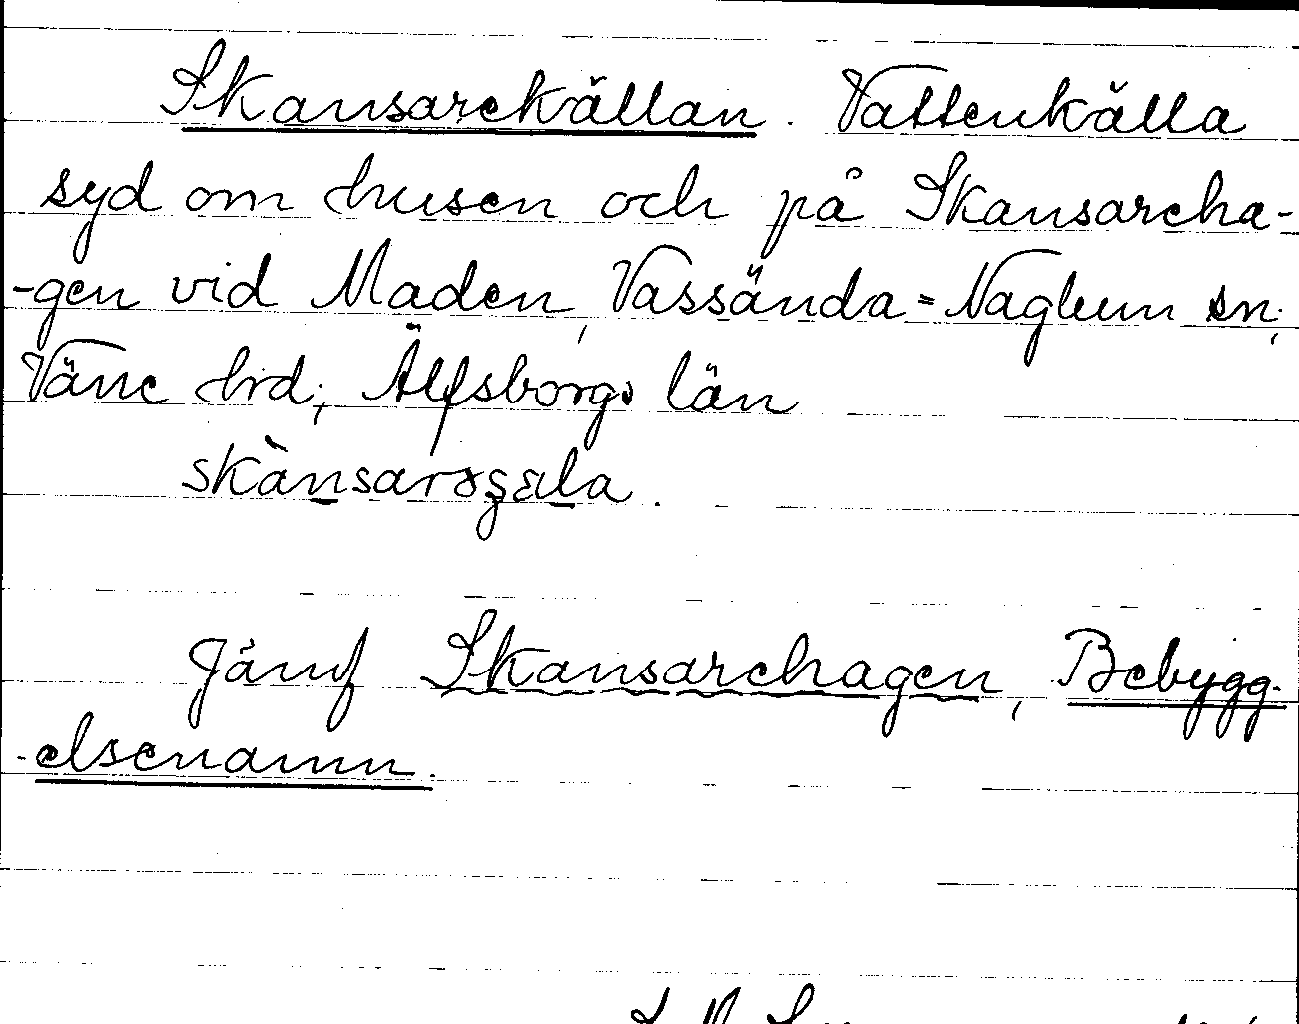 Skansarekällan. Vattenkälla
syd om husen och på Skansareha-
-gen vid Maden, Vassända-Naglum sn,
Väne hrd, Älfsborgs län
Jämf Skansarehagen, Bebygg-
-elsenamn.